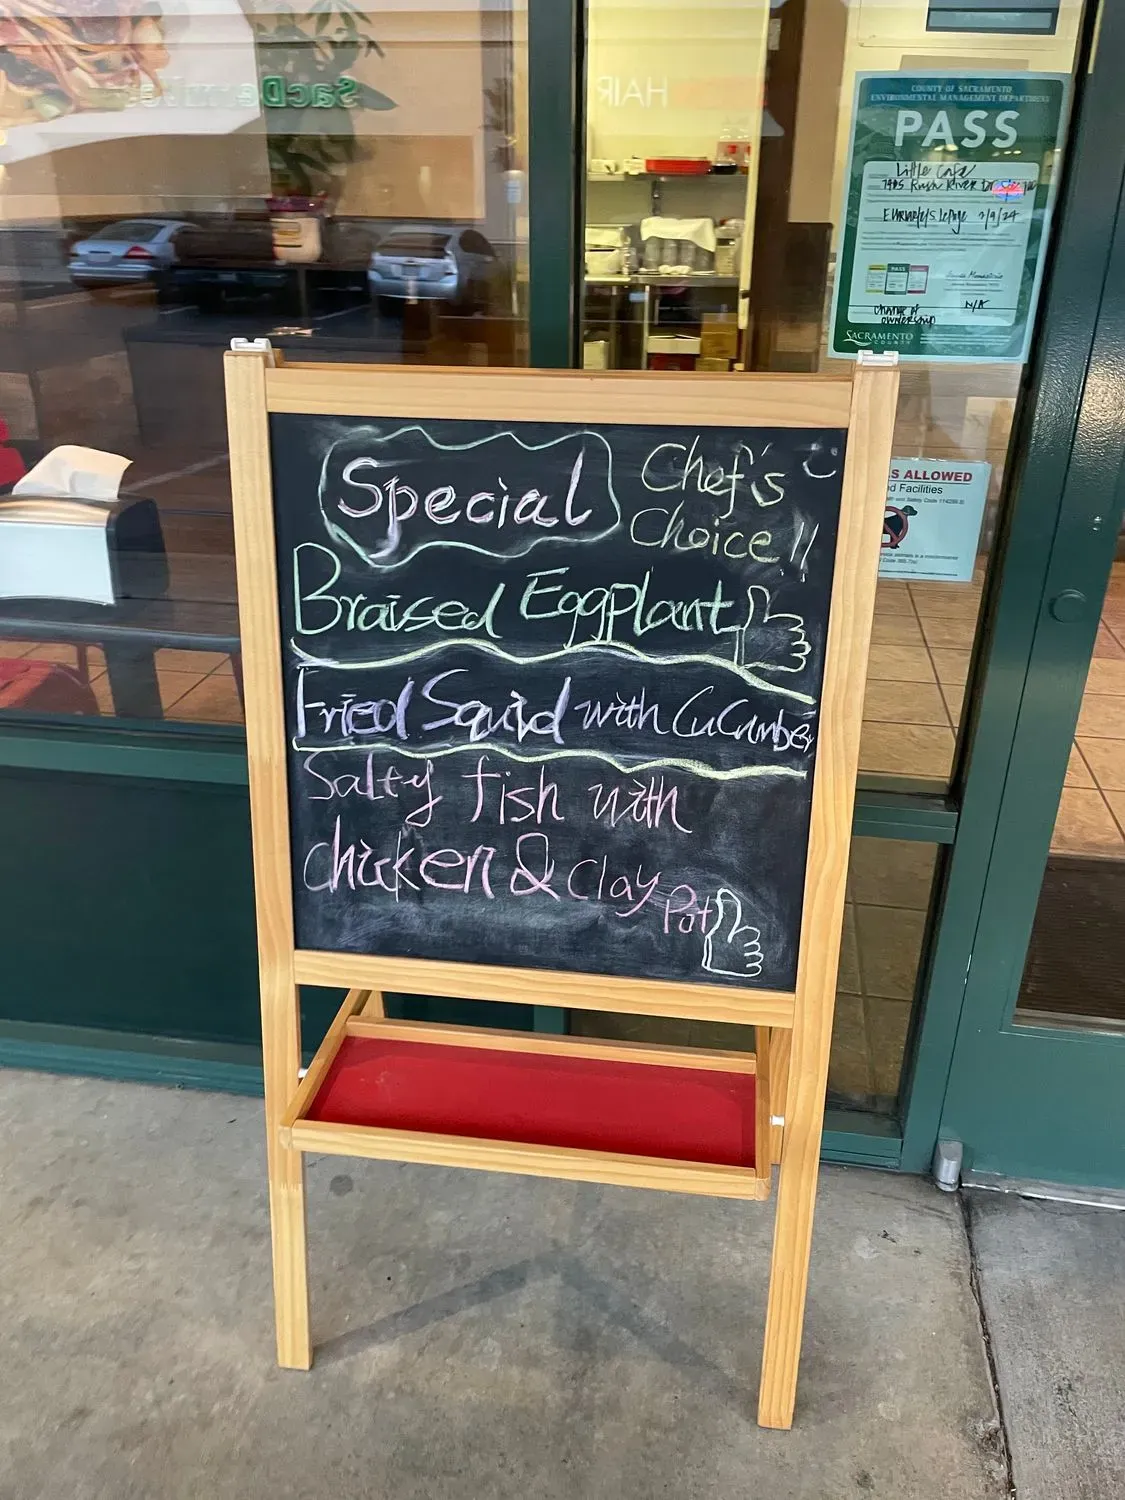 SacDentalCare
HAIR
COUNTY OF SACRAMENTO
ENVIRONMENTAL MANAGEMENT DEPARTMENT
PASS
Little Cafe
7485 Rush River Dr
2/9/24
PASS
N/A
change of
ownership
SACRAMENTO
COUNTY
S ALLOWED
od Facilities
Special
Chef's
Choice!!
Braised Eggplant
Fried Squid with CuCumber
Salty fish with
chicken & Clay
Pot